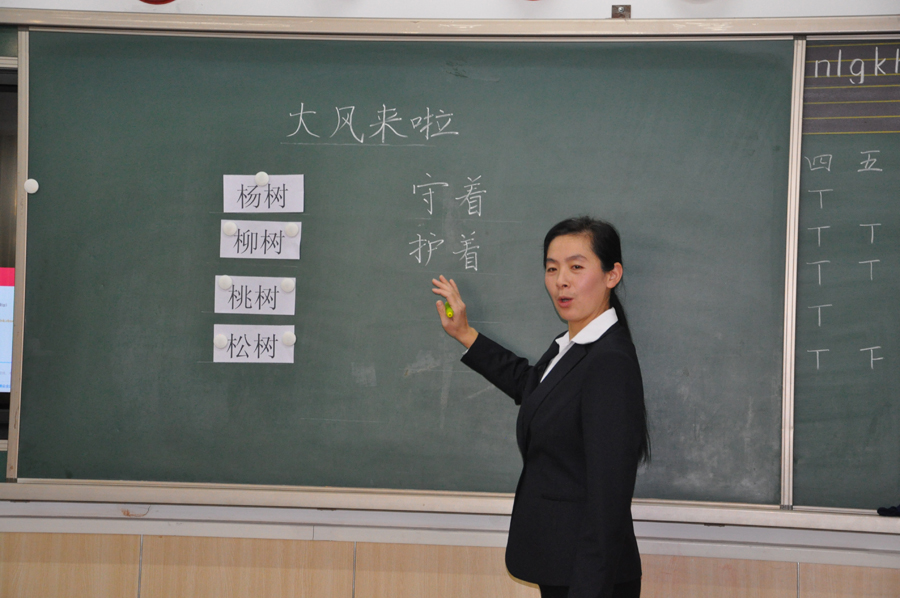 大风来啦
杨树
柳树
桃树
松树
守着
护着
nlgkh
四 五
丅
丅 丅
丅 丅
丅
丅 下